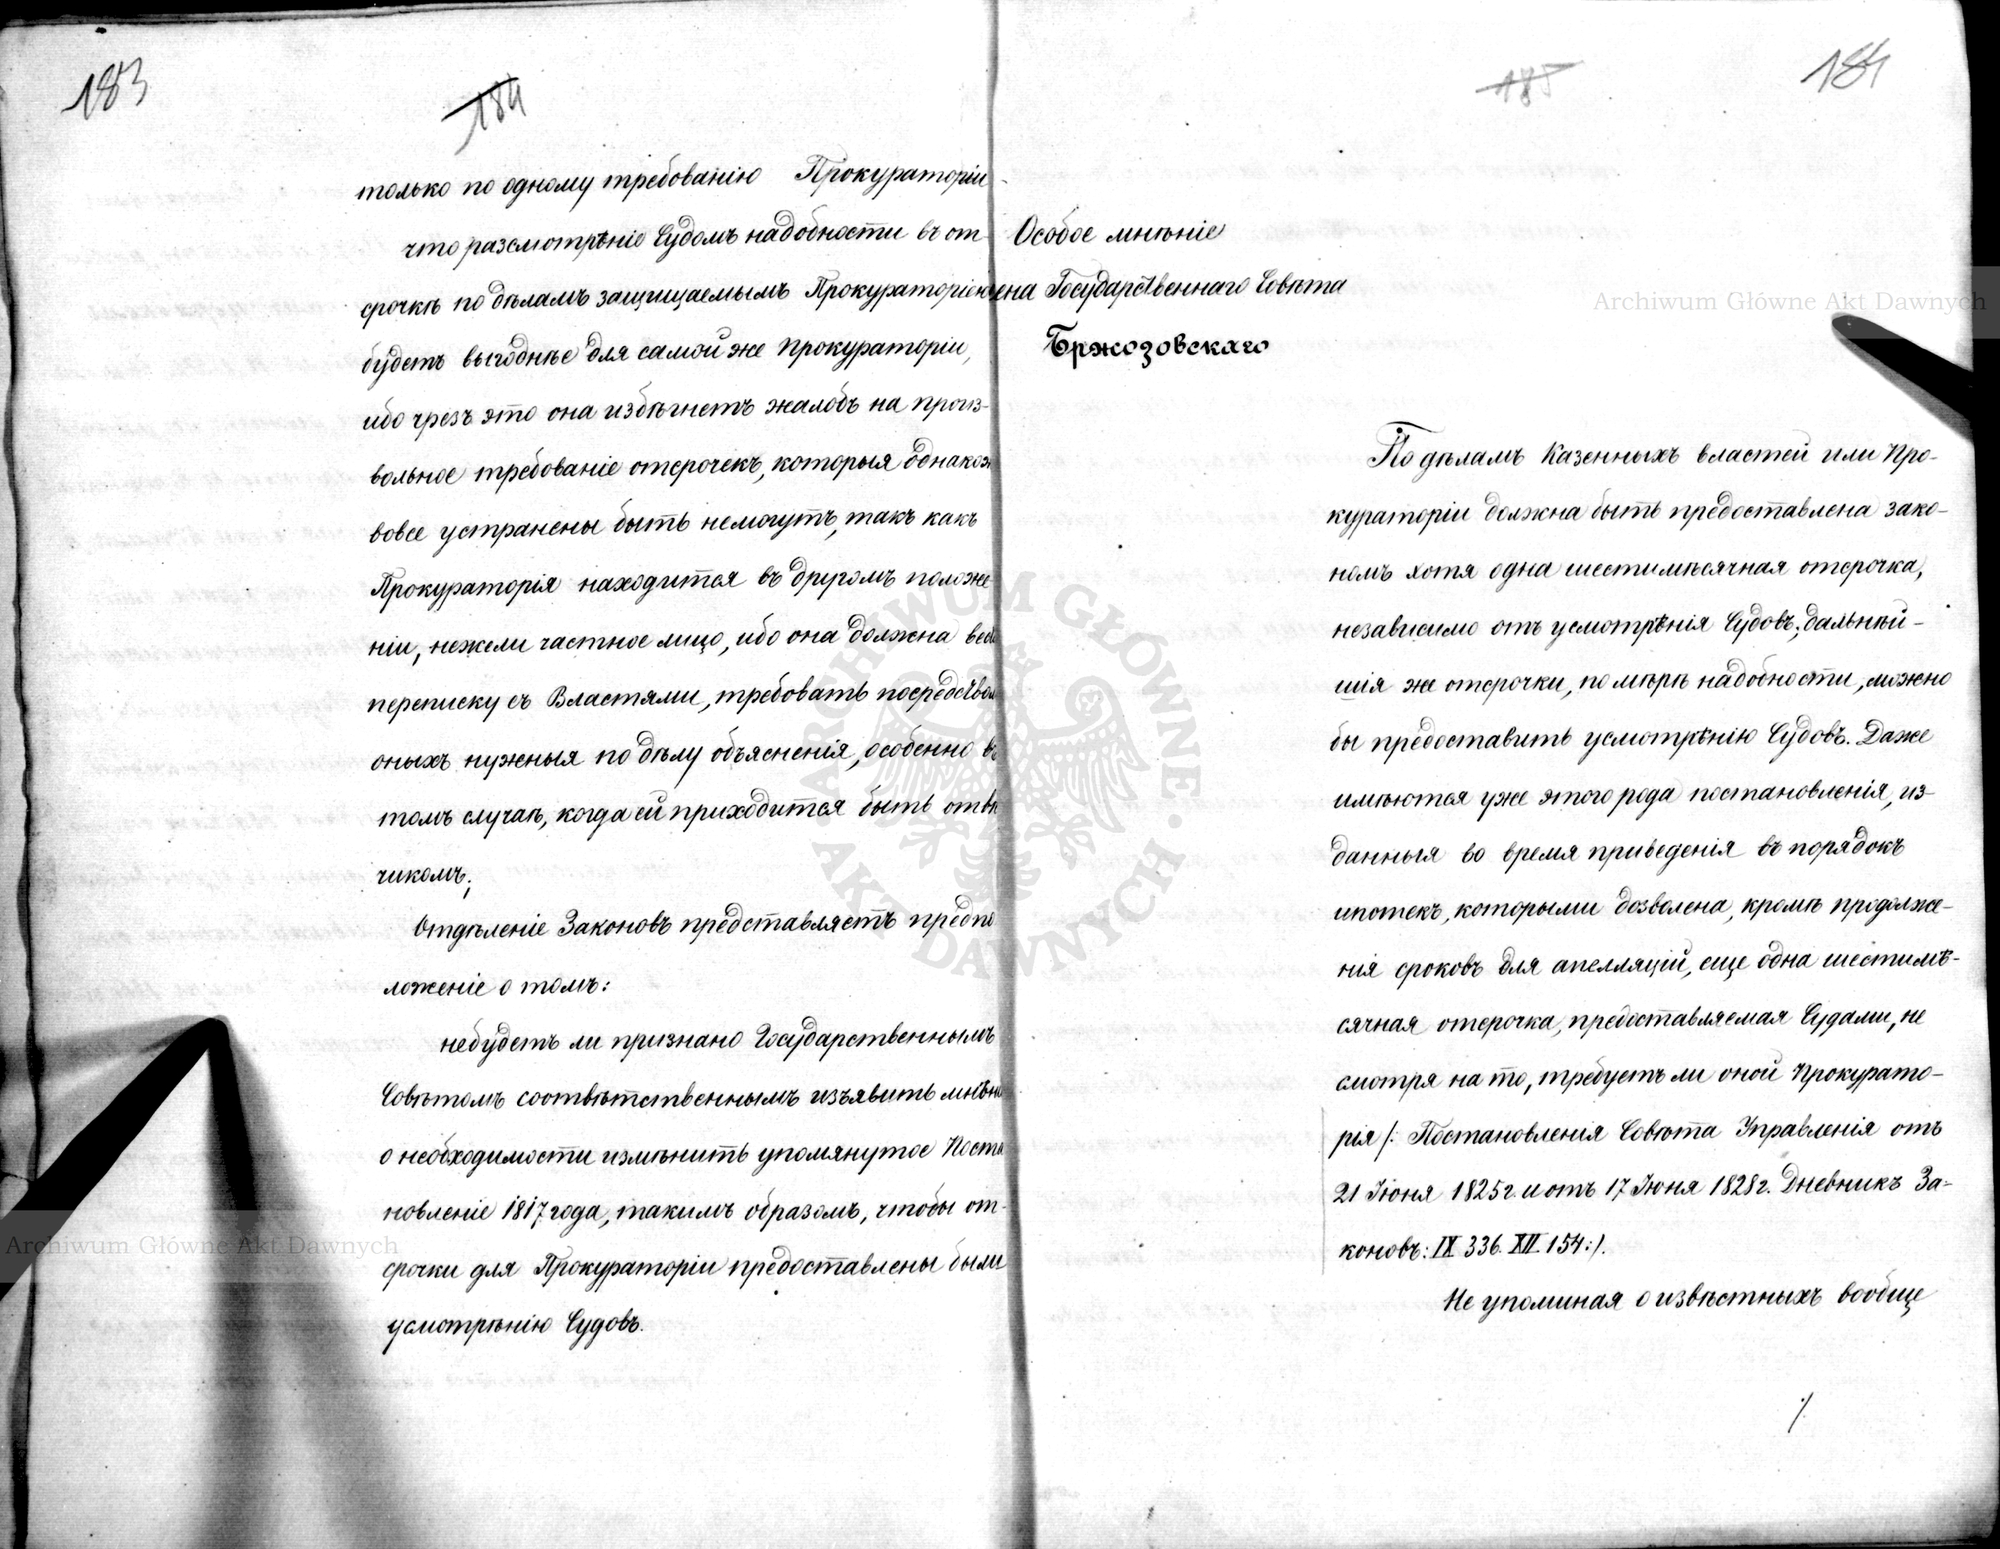 183
184
только по одному требованію Прокураторіи
что разсмотрѣніе Судомъ надобности въ от
срочкѣ по дѣламъ защищаемымъ Прокураторіею
будетъ выгоднѣе для самой же Прокураторіи,
ибо чрезъ это она избѣгнетъ жалобъ на произ-
вольное требованіе отсрочекъ, которыя однакож
вовсе устранены быть немогутъ, такъ какъ
Прокураторія находится въ другомъ положе
ніи, нежели частное лицо, ибо она должна вес
переписку съ Властями, требовать посредством
оныхъ нужныя по дѣлу объясненія, особенно въ
томъ случаѣ, когда ей приходится быть отвѣ
чикомъ;
Отдѣленіе Законовъ представляетъ предпо
ложеніе о томъ:
небудетъ ли признано Государственнымъ
Совѣтомъ соотвѣтственнымъ изъявить мнѣні
о необходимости измѣнить упомянутое Поста
новленіе 1817 года, такимъ образомъ, чтобы от-
срочки для Прокураторіи предоставлены были
усмотрѣнію Судовъ.
185
184
Особое мнѣніе
ена Государственнаго Совѣта
Бржозовскаго
По дѣламъ Казенныхъ властей или Про-
кураторіи должна быть предоставлена зако-
номъ хотя одна шестимѣсячная отсрочка,
независимо отъ усмотрѣнія Судовъ; дальнѣй-
шія же отсрочки, по мѣрѣ надобности, можно
бы предоставить усмотрѣнію Судовъ. Даже
имѣются уже этого рода постановленія, из-
данныя во время приведенія въ порядокъ
ипотекъ, которыми дозволена, кромѣ продолже-
нія сроковъ для апелляцій, еще одна шестимѣ-
сячная отсрочка, предоставляемая Судами, не
смотря на то, требуетъ ли оной Прокурато-
рія /: Постановленія Совѣта Управленія отъ
21 Іюня 1825 г. и отъ 17 Іюня 1828 г. Дневникъ За-
коновъ: IX 336. XII. 154:/.
Не упоминая о извѣстныхъ вообще
Archiwum Główne Akt Dawnych
Archiwum Główne Akt Dawnych
ARCHIWUM GŁÓWNE · AKT DAWNYCH ·